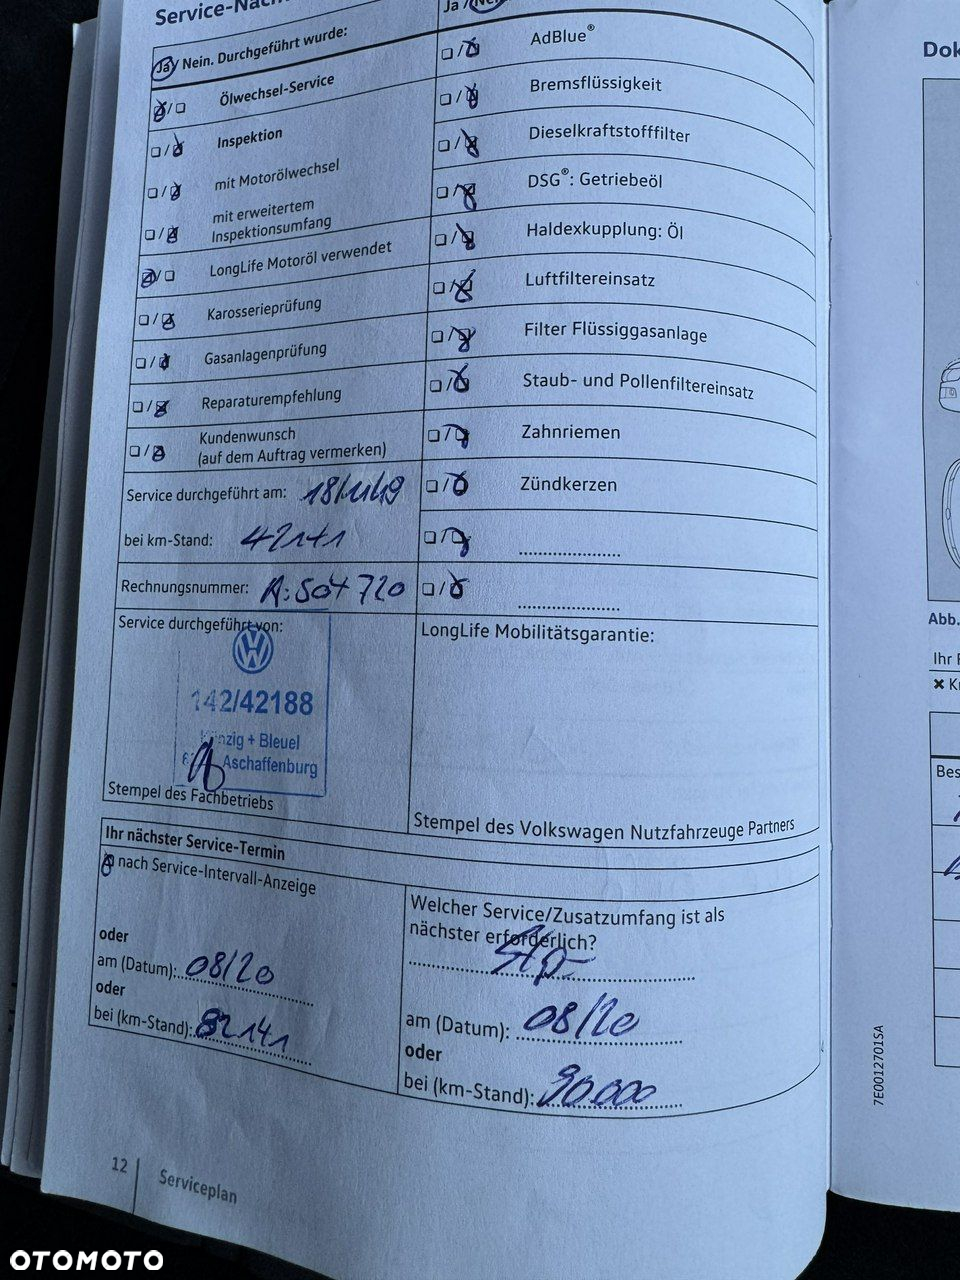 Service-Nach
Ja / Nein. Durchgeführt wurde:
Ölwechsel-Service
Inspektion
mit Motorölwechsel
mit erweitertem
Inspektionsumfang
LongLife Motoröl verwendet
Karosserieprüfung
Gasanlagenprüfung
Reparaturempfehlung
Kundenwunsch
(auf dem Auftrag vermerken)
Service durchgeführt am: 18/11/19
bei km-Stand: 42141
Rechnungsnummer: A:504720
Service durchgeführt von:
142/42188
zig + Bleuel
Aschaffenburg
Stempel des Fachbetriebs
Ja / Nein
AdBlue®
Bremsflüssigkeit
Dieselkraftstofffilter
DSG®: Getriebeöl
Haldexkupplung: Öl
Luftfiltereinsatz
Filter Flüssiggasanlage
Staub- und Pollenfiltereinsatz
Zahnriemen
Zündkerzen
LongLife Mobilitätsgarantie:
Stempel des Volkswagen Nutzfahrzeuge Partners
Ihr nächster Service-Termin
nach Service-Intervall-Anzeige
oder
am (Datum): 08/20
oder
bei (km-Stand): 82141
Welcher Service/Zusatzumfang ist als
nächster erforderlich?
am (Datum): 08/20
oder
bei (km-Stand): 90.000
12
Serviceplan
Dok
Abb.
Ihr F
Bes
7E0012701SA
OTOMOTO